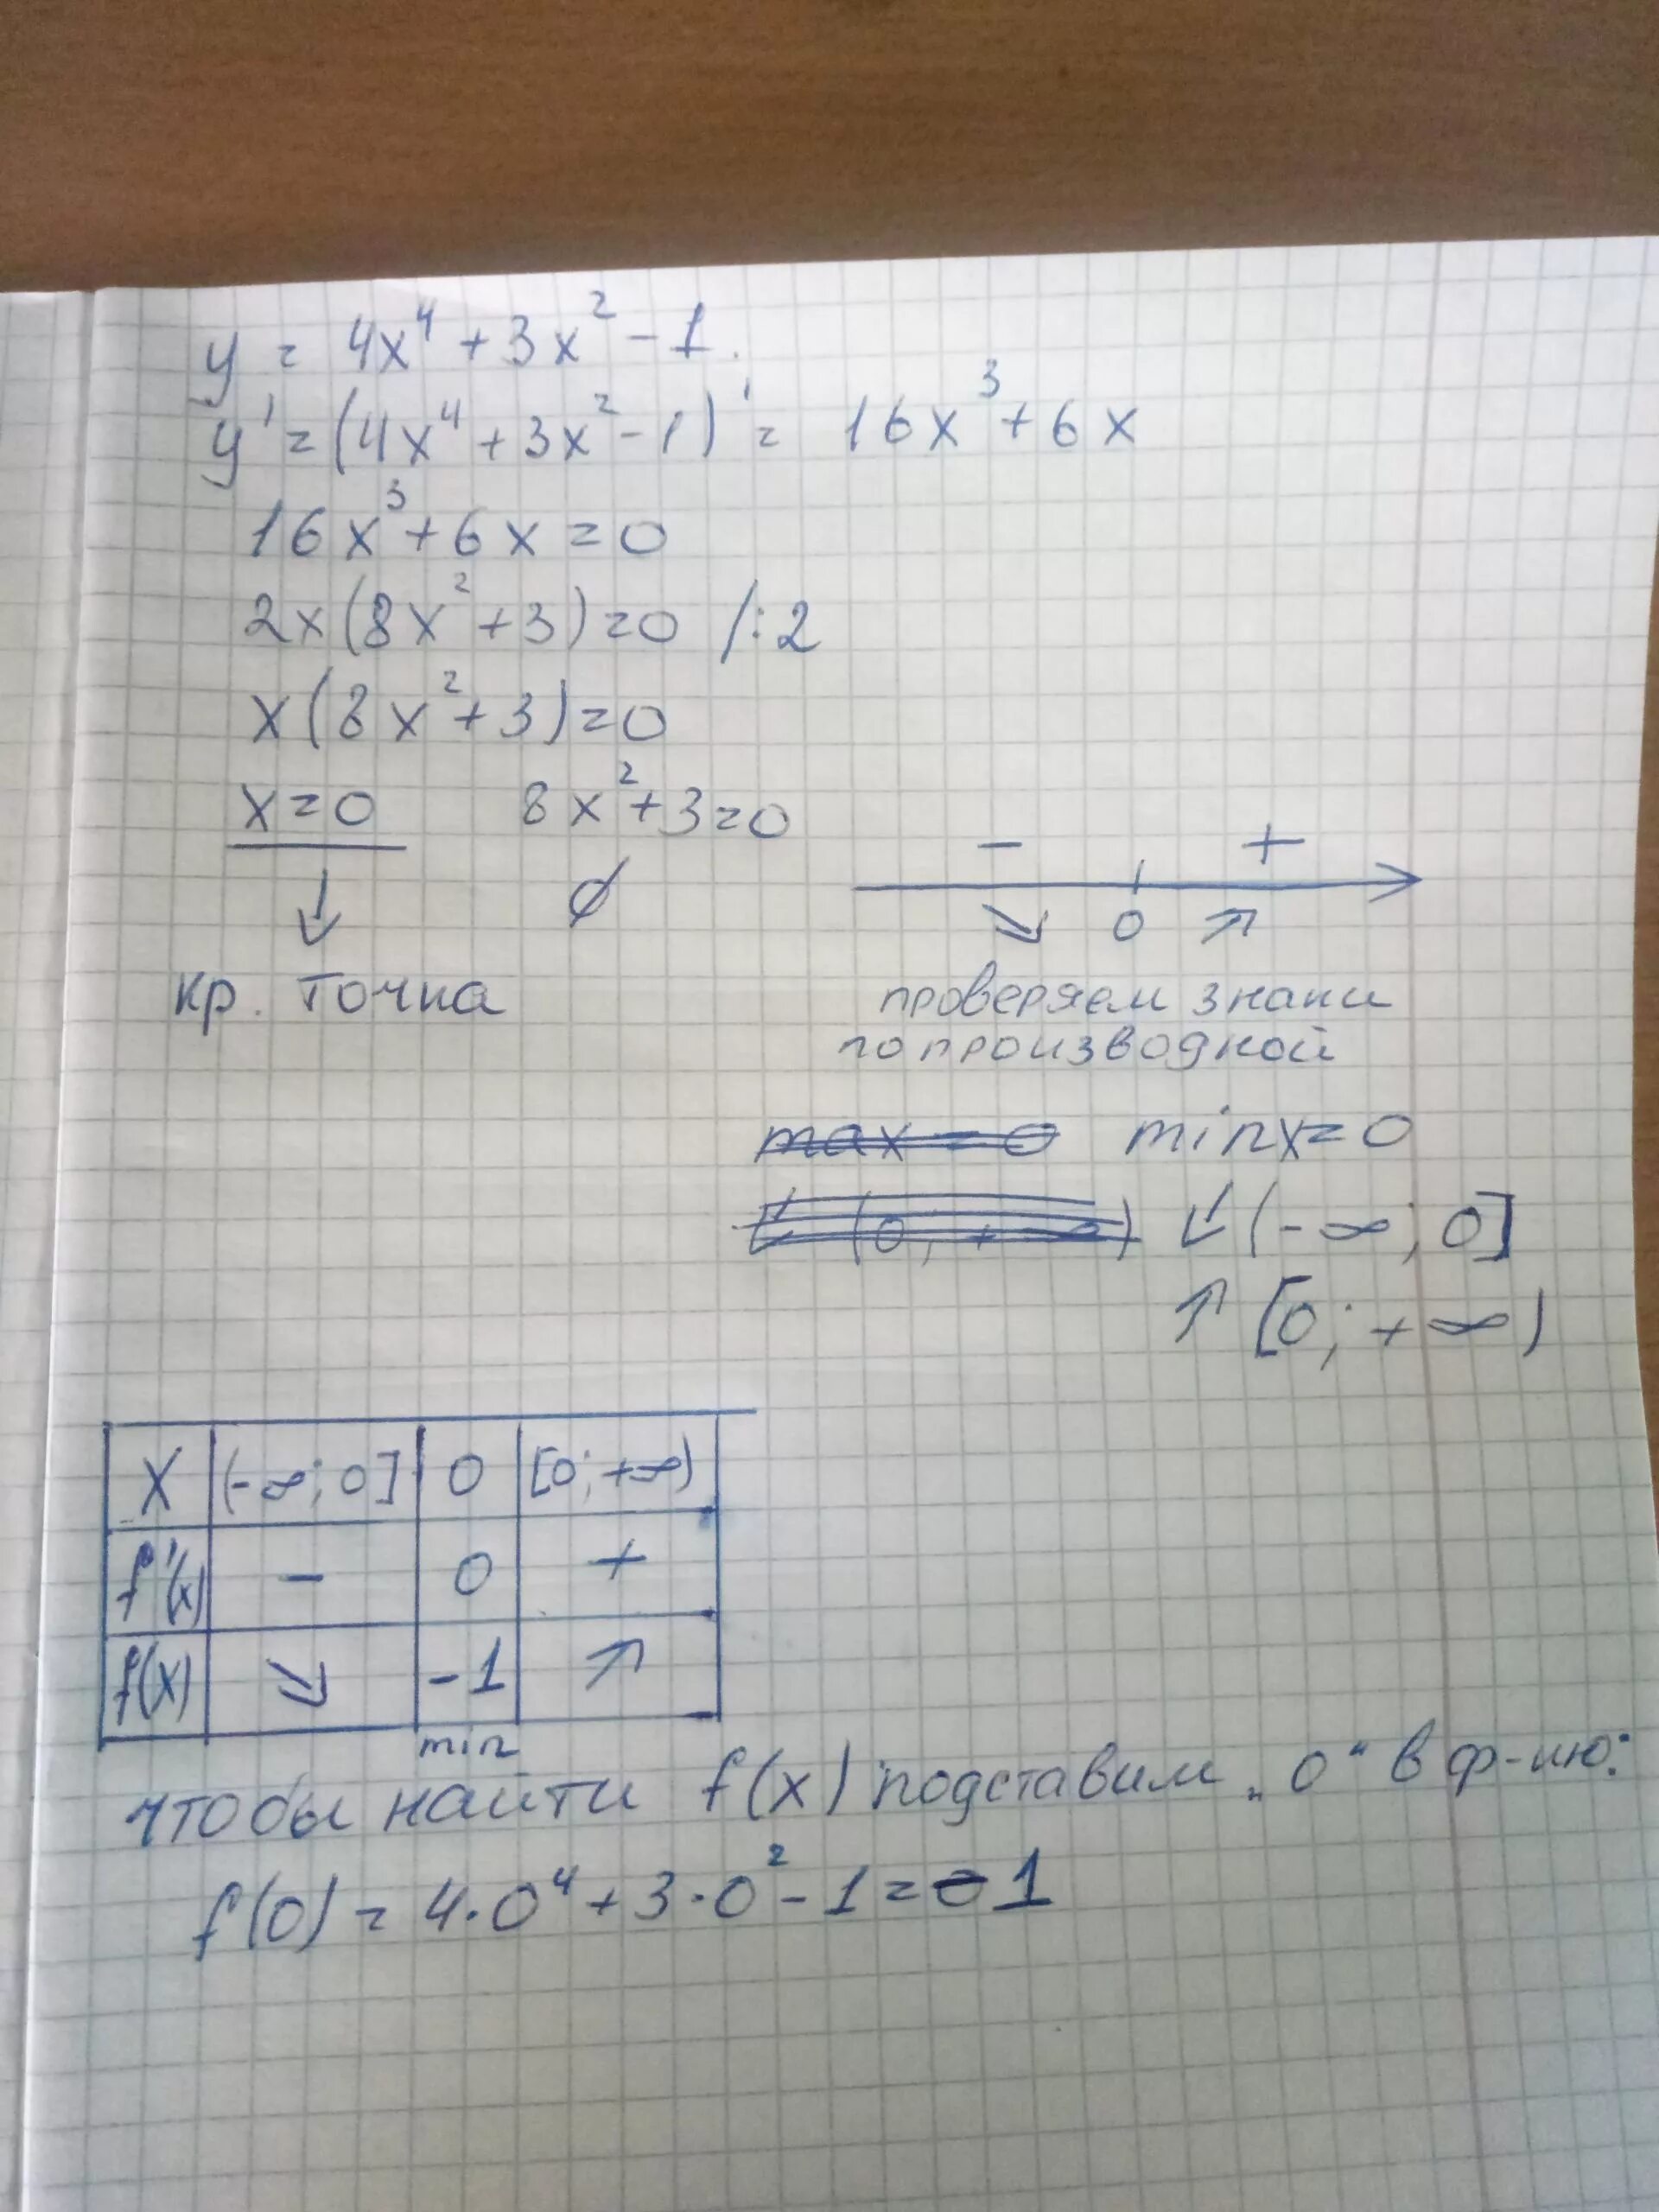 y = 4x⁴ + 3x² - 1.
y' = (4x⁴ + 3x² - 1)' = 16x³ + 6x
16x³ + 6x = 0
2x(8x² + 3) = 0 /:2
x(8x² + 3) = 0
x = 0 8x² + 3 = 0
↓ ∅
- +
↘ 0 ↗
кр. точка
проверяем знаки
по производной
max = 0 min x = 0
↙ (0; +∞) ↙ (-∞; 0]
↗ [0; +∞)
X (-∞; 0] 0 [0; +∞)
f'(x) - 0 +
f(x) ↘ -1 ↗
min
чтобы найти f(x) подставим „0“ в ф-ию:
f(0) = 4·0⁴ + 3·0² - 1 = -1